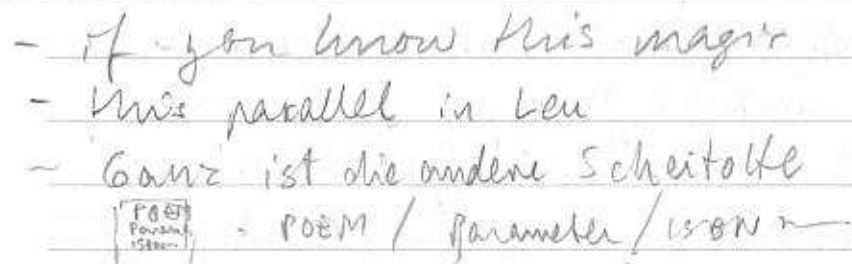 - if you know this magir
- this parallel in Leu
- Ganz ist die andere Scheitolte
POEM
Param
ison
- POEM / Parameter / ison